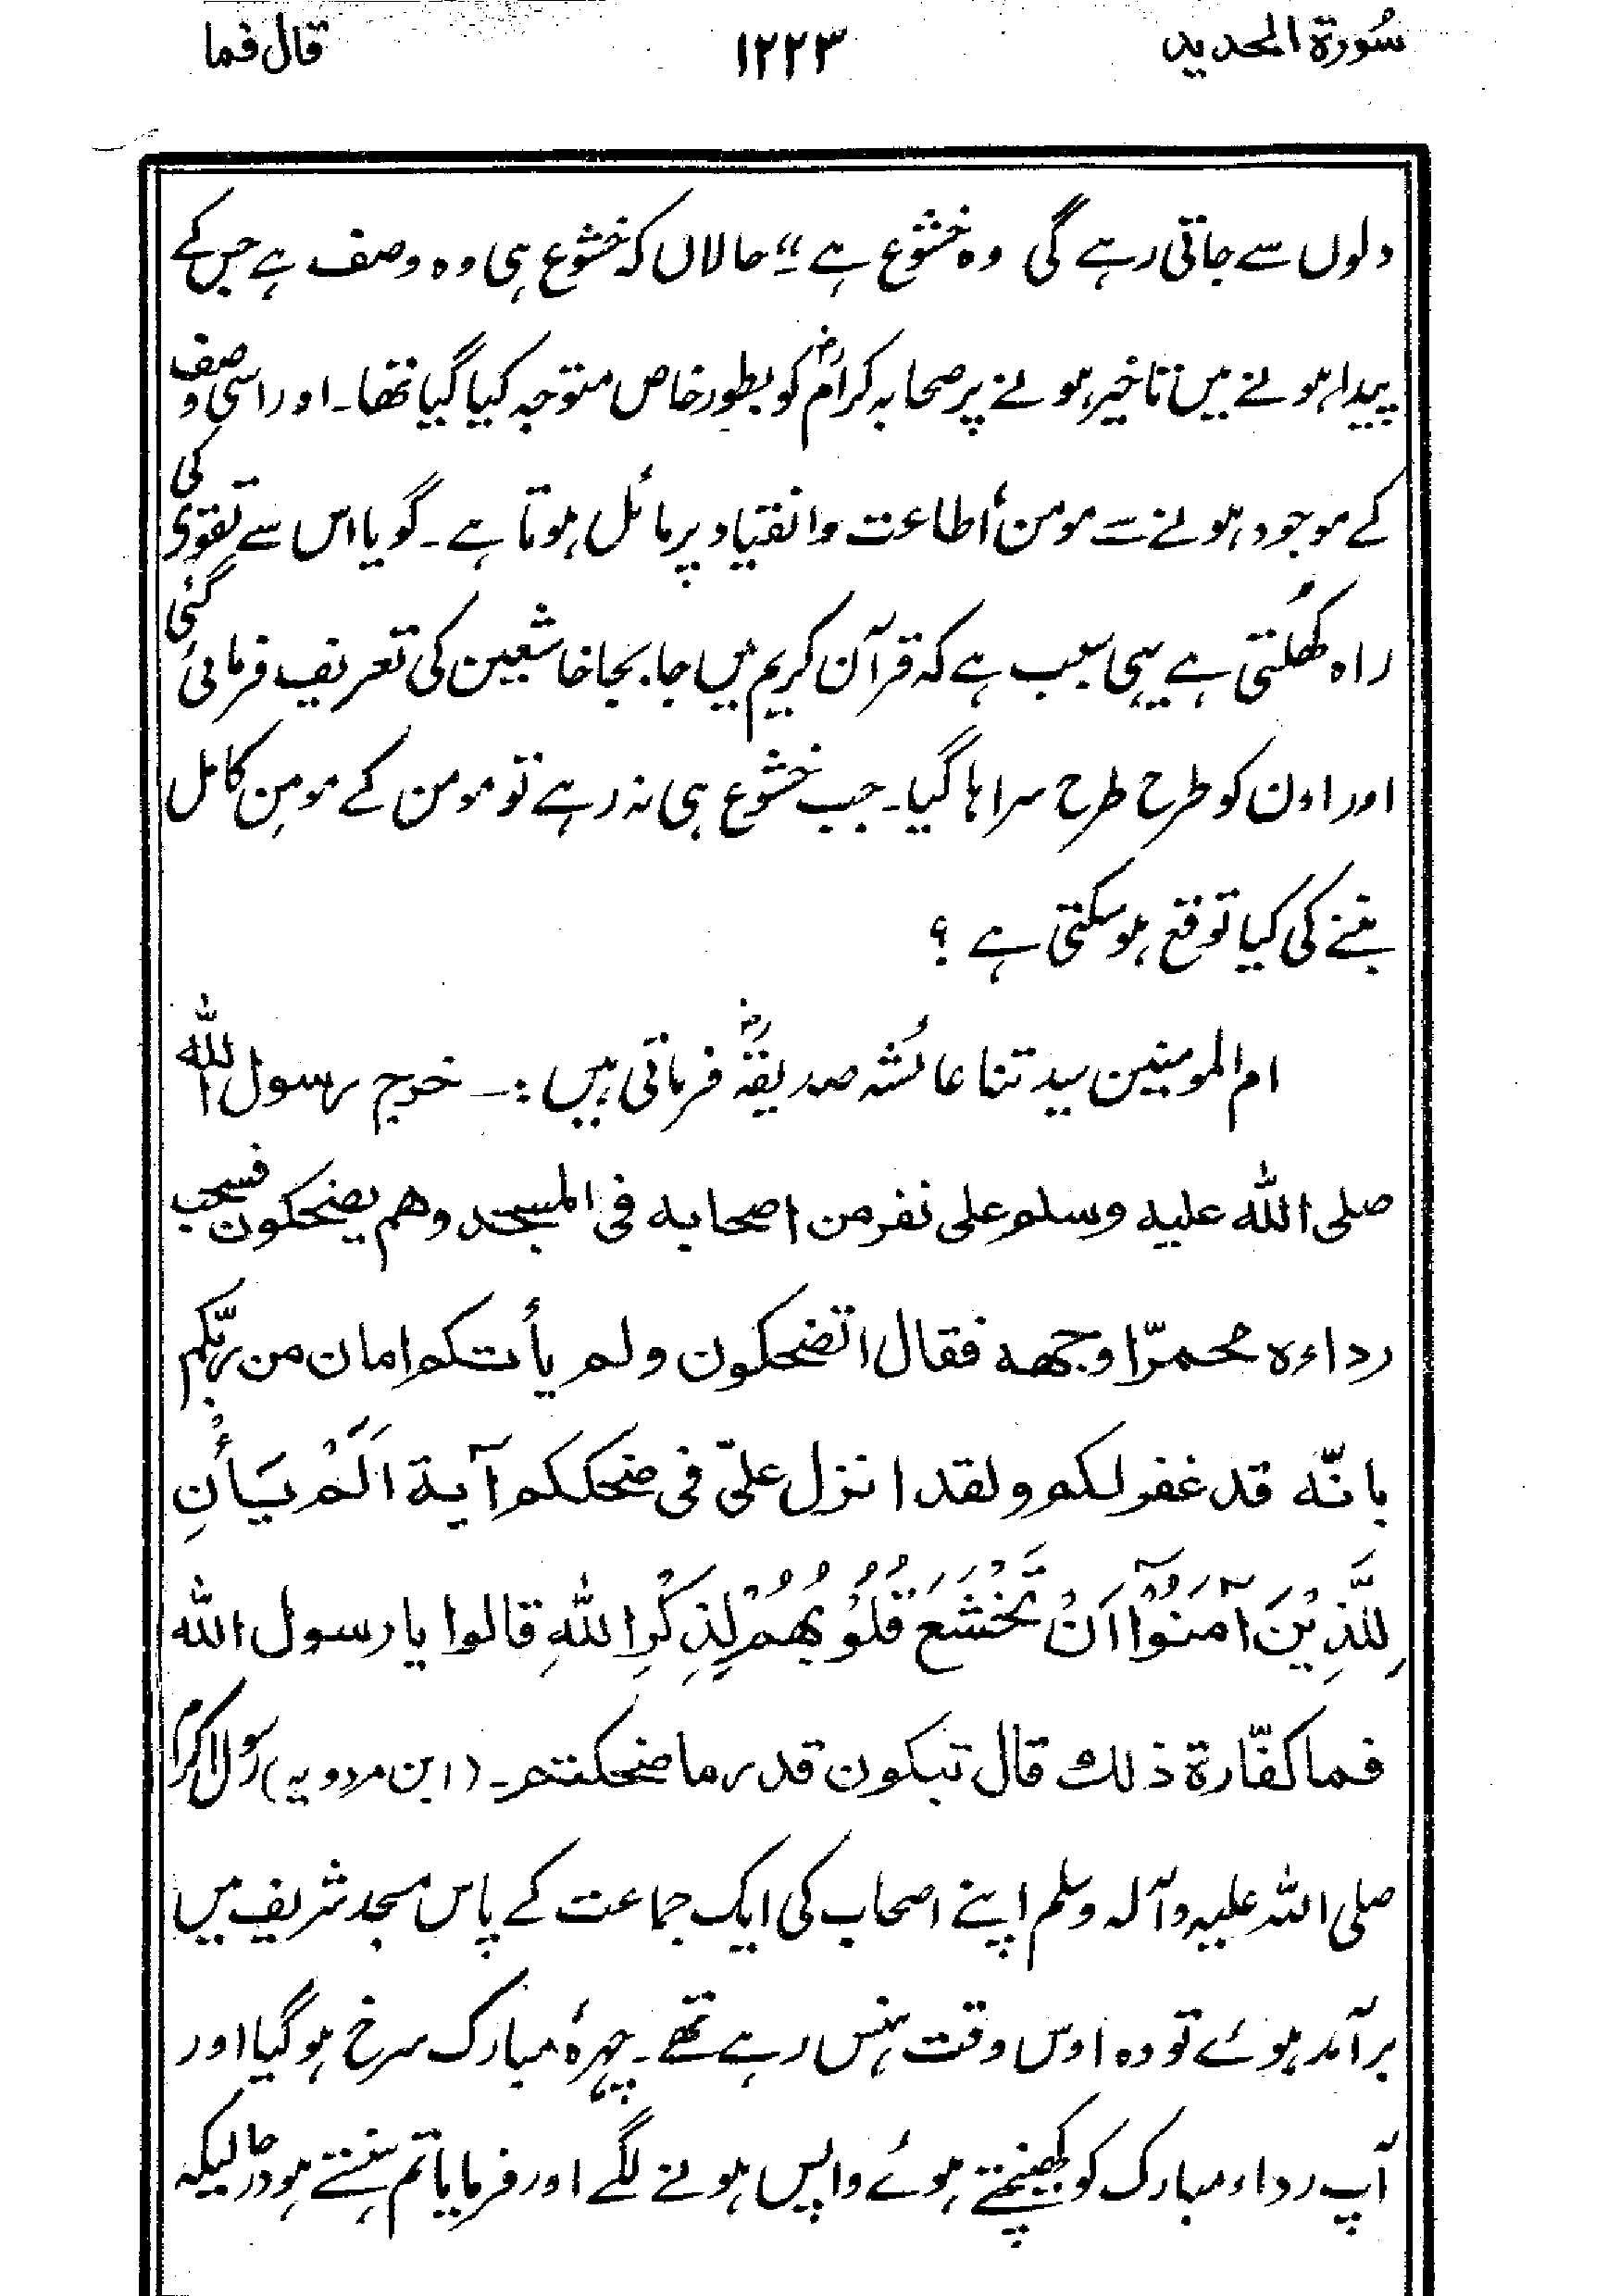 سُورۃ الحدید ۱۲۲۳ قال فما
دلوں سے جاتی رہے گی وہ خشوع ہے“ حالاں کہ خشوع ہی وہ وصف ہے جس کے
پیدا ہونے میں تاخیر ہونے پر صحابہ کرامؓ کو بطور خاص متوجہ کیا گیا تھا۔ اور اسی وصف
کے موجود ہونے سے مومن اُطاعت وانقیاد پر مائل ہوتا ہے۔ گویا اس سے تقویٰ کی
راہ کھُلتی ہے یہی سبب ہے کہ قرآن کریم میں جا بجا خاشعین کی تعریف فرمائی گئی
اور اون کو طرح طرح سراہا گیا۔ جب خشوع ہی نہ رہے تو مومن کے مومنِ کامل
بننے کی کیا توقع ہوسکتی ہے ؟
ام المومنین سیدتنا عائشہ صدیقہؓ فرماتی ہیں :۔ خرج رسول اللہ
صلی اللہ علیہ وسلم علی نفر من اصحابہ فی المسجد وھم یضحکون فسحب
رداءہ محمرّا وجھہ فقال اتضحکون ولم یأتکم امان من ربّکم
بانّہ قد غفر لکم ولقد انزل علیّ فی ضحککم آیة اَلَمْ یَأْنِ
لِلَّذِیْنَ آمَنُوْآ اَنْ تَخْشَعَ قُلُوْبُھُمْ لِذِکْرِ اللهِ قالوا یا رسول الله
فما کفّارة ذلك قال تبکون قدر ما ضحکتم۔ (ابن مردویہ) رسول اکرم
صلی اللہ علیہ وآلہ وسلم اپنے اصحاب کی ایک جماعت کے پاس مسجد شریف میں
برآمد ہوئے تو وہ اوس وقت ہنس رہے تھے۔ چہرۂ مبارک سرخ ہوگیا اور
آپ رداء مبارک کو کھینچتے ہوئے واپس ہونے لگے اور فرمایا تم ہنستے ہو درحالیکہ